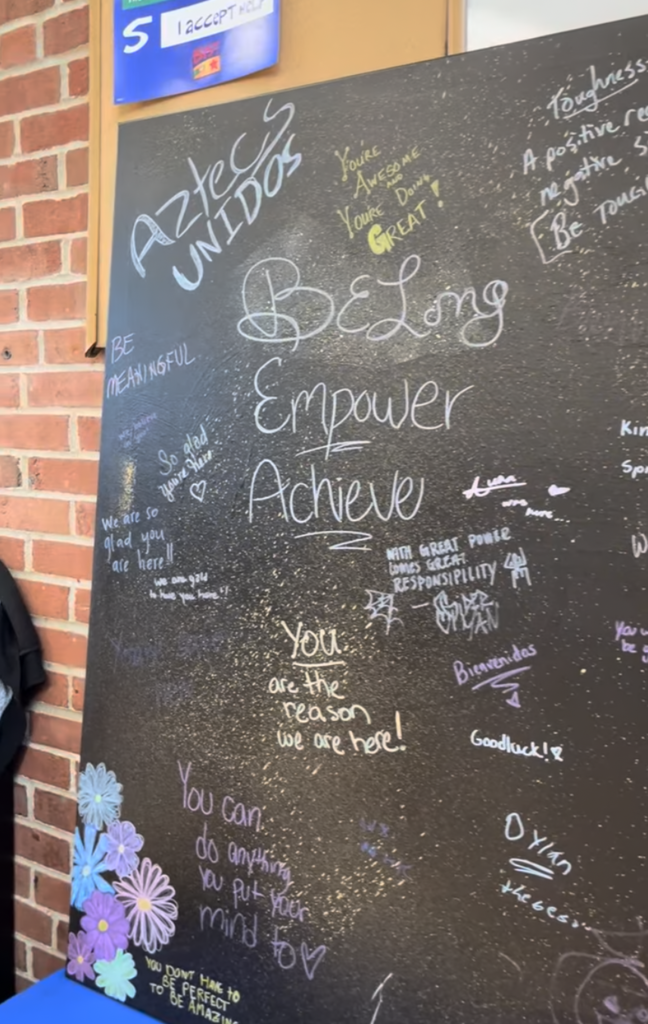 5
I ACCEPT HELP
AZTECS
UNIDOS
YOU'RE
AWESOME
AND
YOU'RE DOING
GREAT!
Toughness
A positive
negative
BE
BELong
Empower
Achieve
BE
MEANINGFUL
So glad
you're here
We are so
glad you
are here!!
we are glad
to have you here
Luna
was here...
WITH GREAT POWER
COMES GREAT
RESPONSIPILITY
You
are the
reason
we are here!
Bienvenidos
Goodluck!
You can
do anything
you put your
mind to
Dylan
YOU DON'T HAVE TO
BE PERFECT
TO BE AMAZING